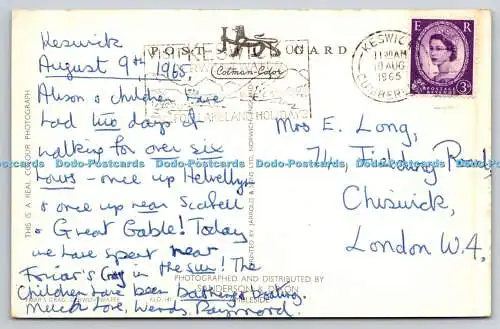 Keswick
August 9th 1965
Alison & children have
had two days of
walking for over six
hours - once up Helvellyn
& once up near Scafell
& Great Gable! Today
we have spent near
Friar's Crag in the sun! The
children have been bathing & boating.
Much Love, Wendy, Raymond.
POST CARD
Cotman-Color
KESWICK
FOR LAKELAND HOLIDAYS
KESWICK
11 30 AM
10 AUG
1965
CUMBERLAND
E R
POSTAGE
REVENUE
3D
Mrs E. Long,
Road,
Chiswick,
London W.4.
THIS IS A REAL COLOUR PHOTOGRAPH
PRINTED BY JARROLD & SONS LTD NORWICH
PHOTOGRAPHED AND DISTRIBUTED BY
SANDERSON & DIXON
AMBLESIDE
FRIAR'S CRAG, DERWENTWATER
Dodo-Postcards Dodo-Postcards Dodo-Postcards Dodo-Postcards Dodo-Postcards Dodo-Postcards